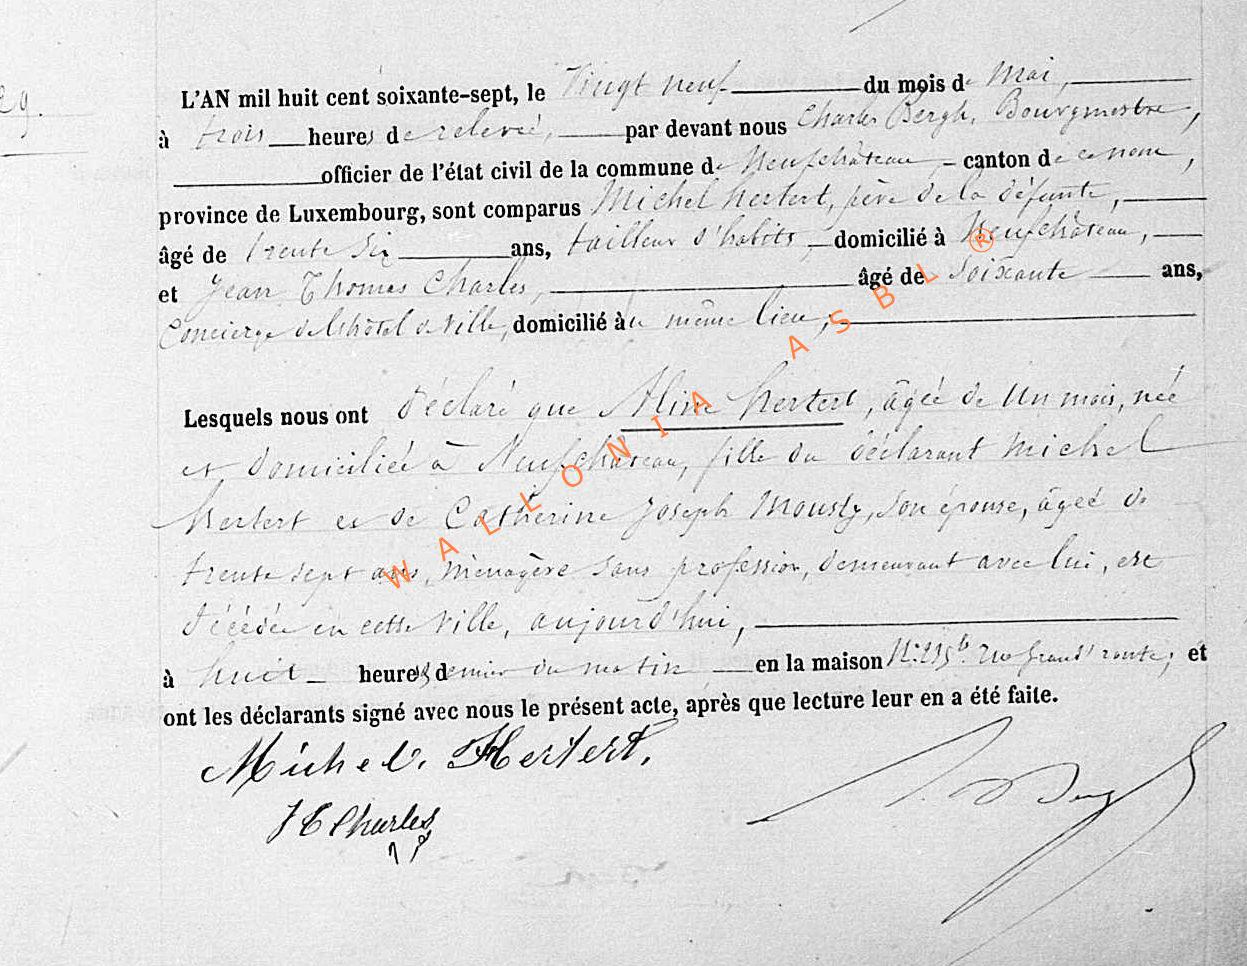 29.
L'AN mil huit cent soixante-sept, le Vingt neuf du mois de Mai,
à trois heures de relevée, par devant nous Charles Bergh, Bourgmestre,
officier de l'état civil de la commune de Neufchâteau, canton de ce nom,
province de Luxembourg, sont comparus Michel Hertert, père de la défunte,
âgé de trente six ans, tailleur d'habits, domicilié à Neufchâteau,
et Jean Thomas Charles, âgé de soixante ans,
Concierge de l'hôtel de Ville, domicilié au même lieu,
Lesquels nous ont déclaré que Aline Hertert, âgée de Un mois, née
et domiciliée à Neufchâteau, fille du déclarant Michel
Hertert et de Catherine Joseph Mousty, son épouse, âgée de
trente sept ans, ménagère sans profession, demeurant avec lui, est
décédée en cette Ville, aujourd'hui,
à huit heures & demie du matin en la maison N° 215 b. rue Grand'route, et
ont les déclarants signé avec nous le présent acte, après que lecture leur en a été faite.
Michel. Hertert.
J T Charles
WALLONIA ASBL ®